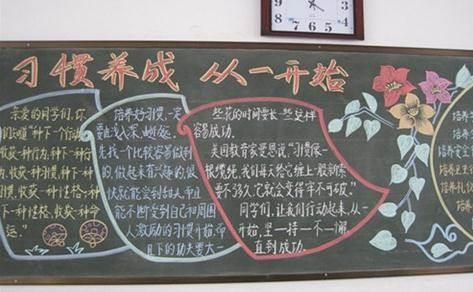 习惯养成 从一开始
亲爱的同学们,你
们知道"种下一个行动
收获一种行为,种下一种
行为,收获一种习惯,种下一
种习惯,收获一种性格,种
下一种性格,收获一种命
运。"
培养好习惯,一定
要由浅入深,
先找一个比较容易做到
的,做起来有兴趣的,很
快就能尝到甜头,并且
能不断受到自己和周围
人激励的习惯开始,而
且下的功夫要大一
些,花的时间要长一些,这样
容易成功。
美国教育家曼恩说:"习惯像一
根缆绳,我们每天给它缠上一股新索,
要不了多久,它就会变得牢不可破。"
同学们,让我们行动起来,从一
开始,坚一持一不一懈,
直到成功。
培养
培养
培养
培养